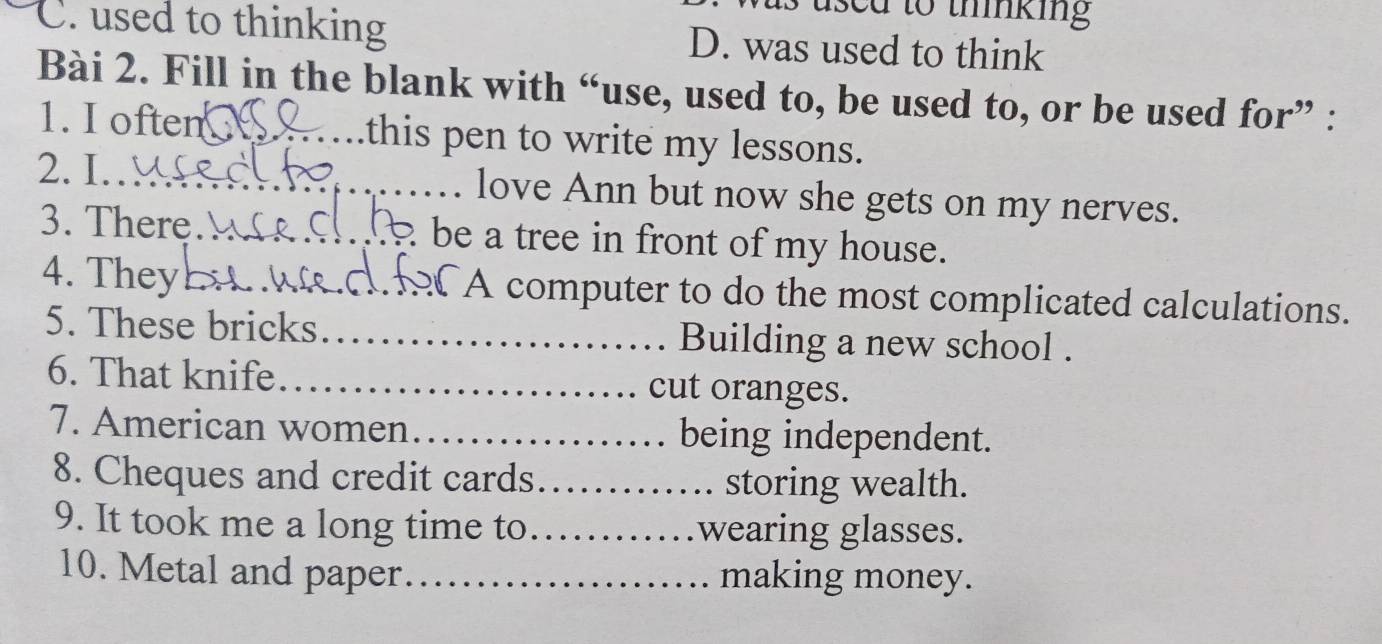 C. used to thinking
was used to thinking
D. was used to think
Bài 2. Fill in the blank with “use, used to, be used to, or be used for” :
1. I often use.......this pen to write my lessons.
2. I...used to.......... love Ann but now she gets on my nerves.
3. There..used to.. be a tree in front of my house.
4. They be used for A computer to do the most complicated calculations.
5. These bricks........................ Building a new school .
6. That knife......................... cut oranges.
7. American women.................. being independent.
8. Cheques and credit cards............. storing wealth.
9. It took me a long time to............wearing glasses.
10. Metal and paper...................... making money.